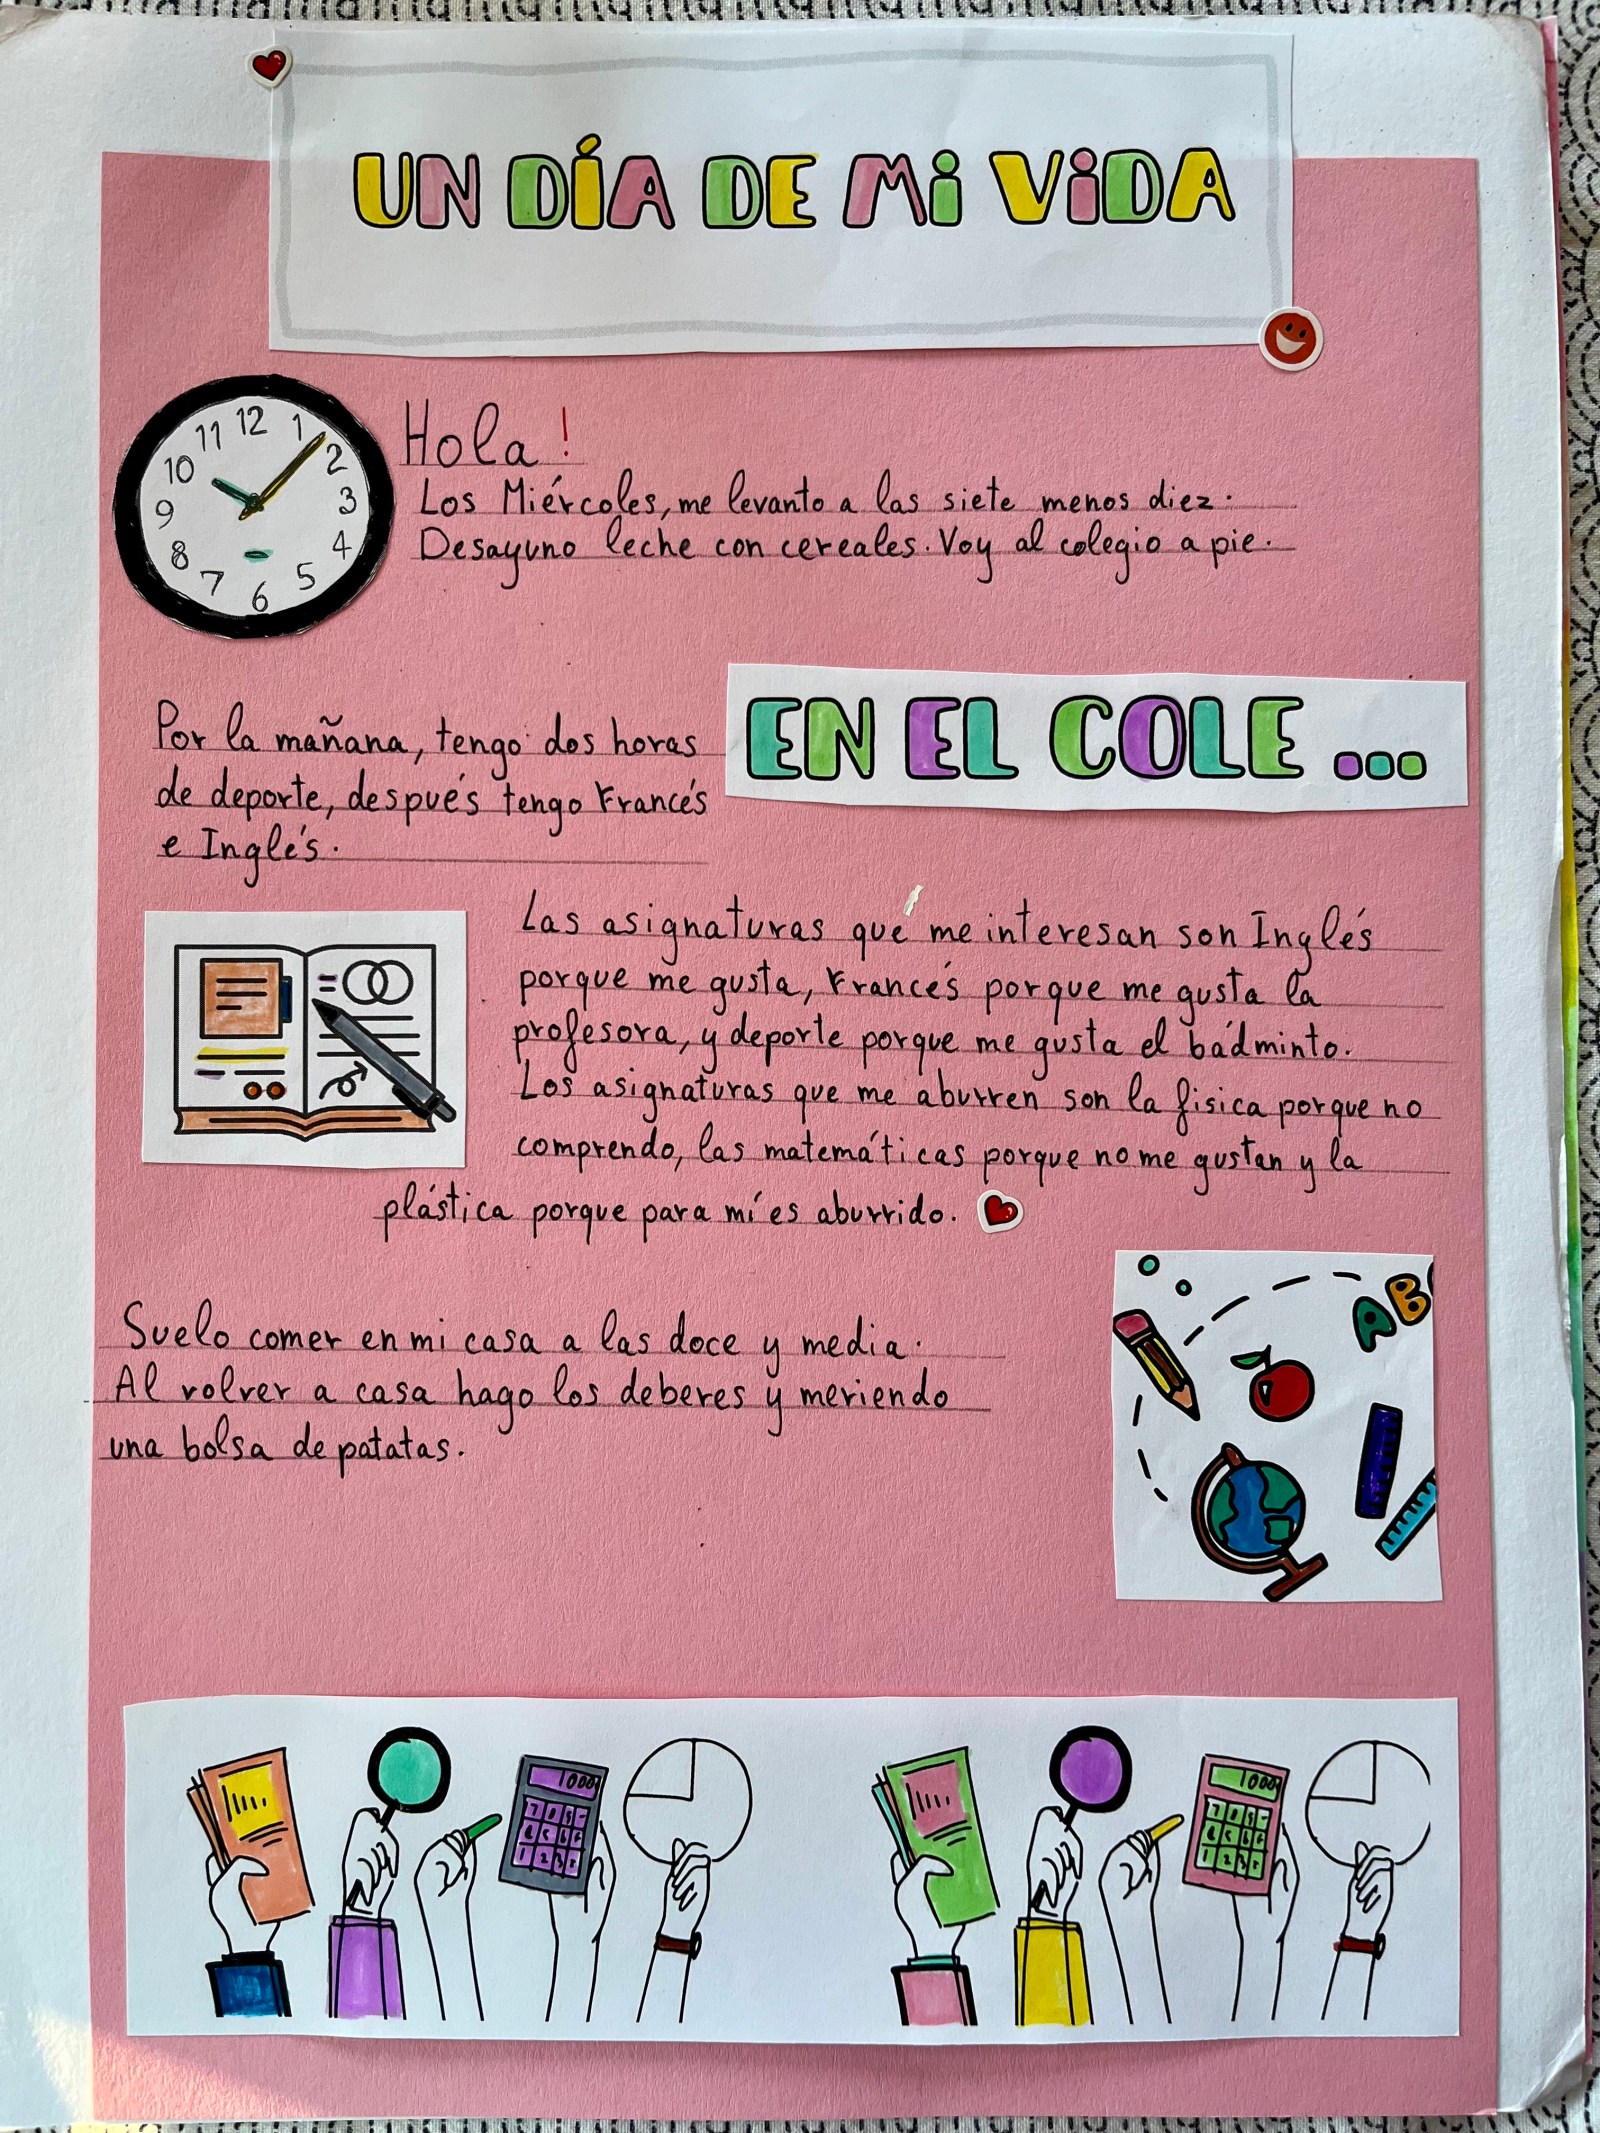 UN DÍA DE Mi ViDA
12
11
1
10
2
9
3
8
4
7
5
6
Hola !
Los Miércoles, me levanto a las siete menos diez.
Desayuno leche con cereales. Voy al colegio a pie.
EN EL COLE ...
Por la mañana, tengo dos horas
de deporte, después tengo Francés
e Inglés.
Las asignaturas que me interesan son Inglés
porque me gusta, Francés porque me gusta la
profesora, y deporte porque me gusta el bádminto.
Los asignaturas que me aburren son la fisica porque no
comprendo, las matemáticas porque no me gustan y la
plástica porque para mí es aburrido.
Suelo comer en mi casa a las doce y media.
Al volver a casa hago los deberes y meriendo
una bolsa de patatas.
AB
1000
1000